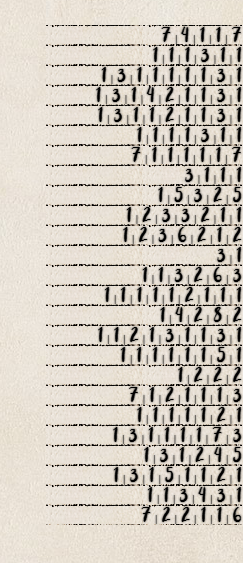 7 4 1 1 7
1 1 1 3 1 1
1 3 1 1 1 1 1 3 1
1 3 1 4 2 1 1 3 1
1 3 1 1 2 1 1 3 1
1 1 1 1 3 1 1
7 1 1 1 1 1 7
3 1 1 1
1 5 3 2 5
1 2 3 3 2 1 1
1 2 3 6 2 1 2
3 1
1 1 3 2 6 3
1 1 1 1 1 2 1 1 1
1 4 2 8 2
1 1 2 1 3 1 1 3 1
1 1 1 1 1 1 5 1
1 2 2 2
7 1 2 1 1 1 3
1 1 1 1 1 2 1
1 3 1 1 1 1 7 3
1 3 1 2 4 5
1 3 1 5 1 1 2 1
1 1 3 4 3 1
7 2 2 1 1 6